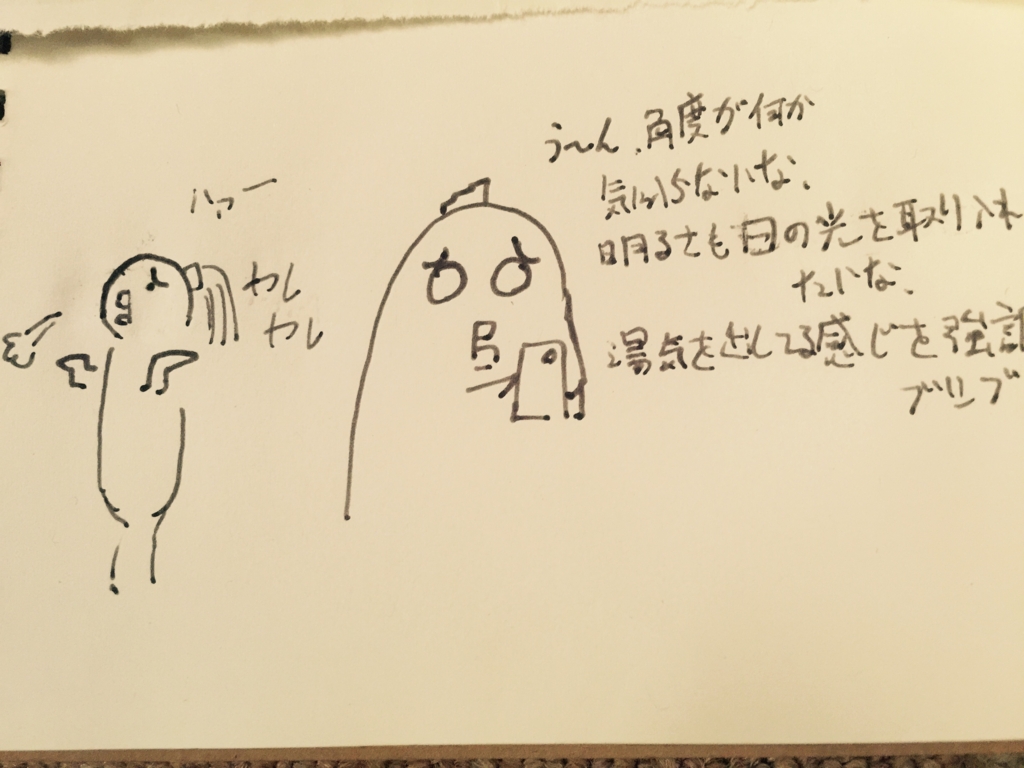 ハァー
ヤレ
ヤレ
う〜ん、角度が何か
気に入らないな、
明るさも日の光を取り入れ
たいな、
湯気を出してる感じを強調
ブツブ